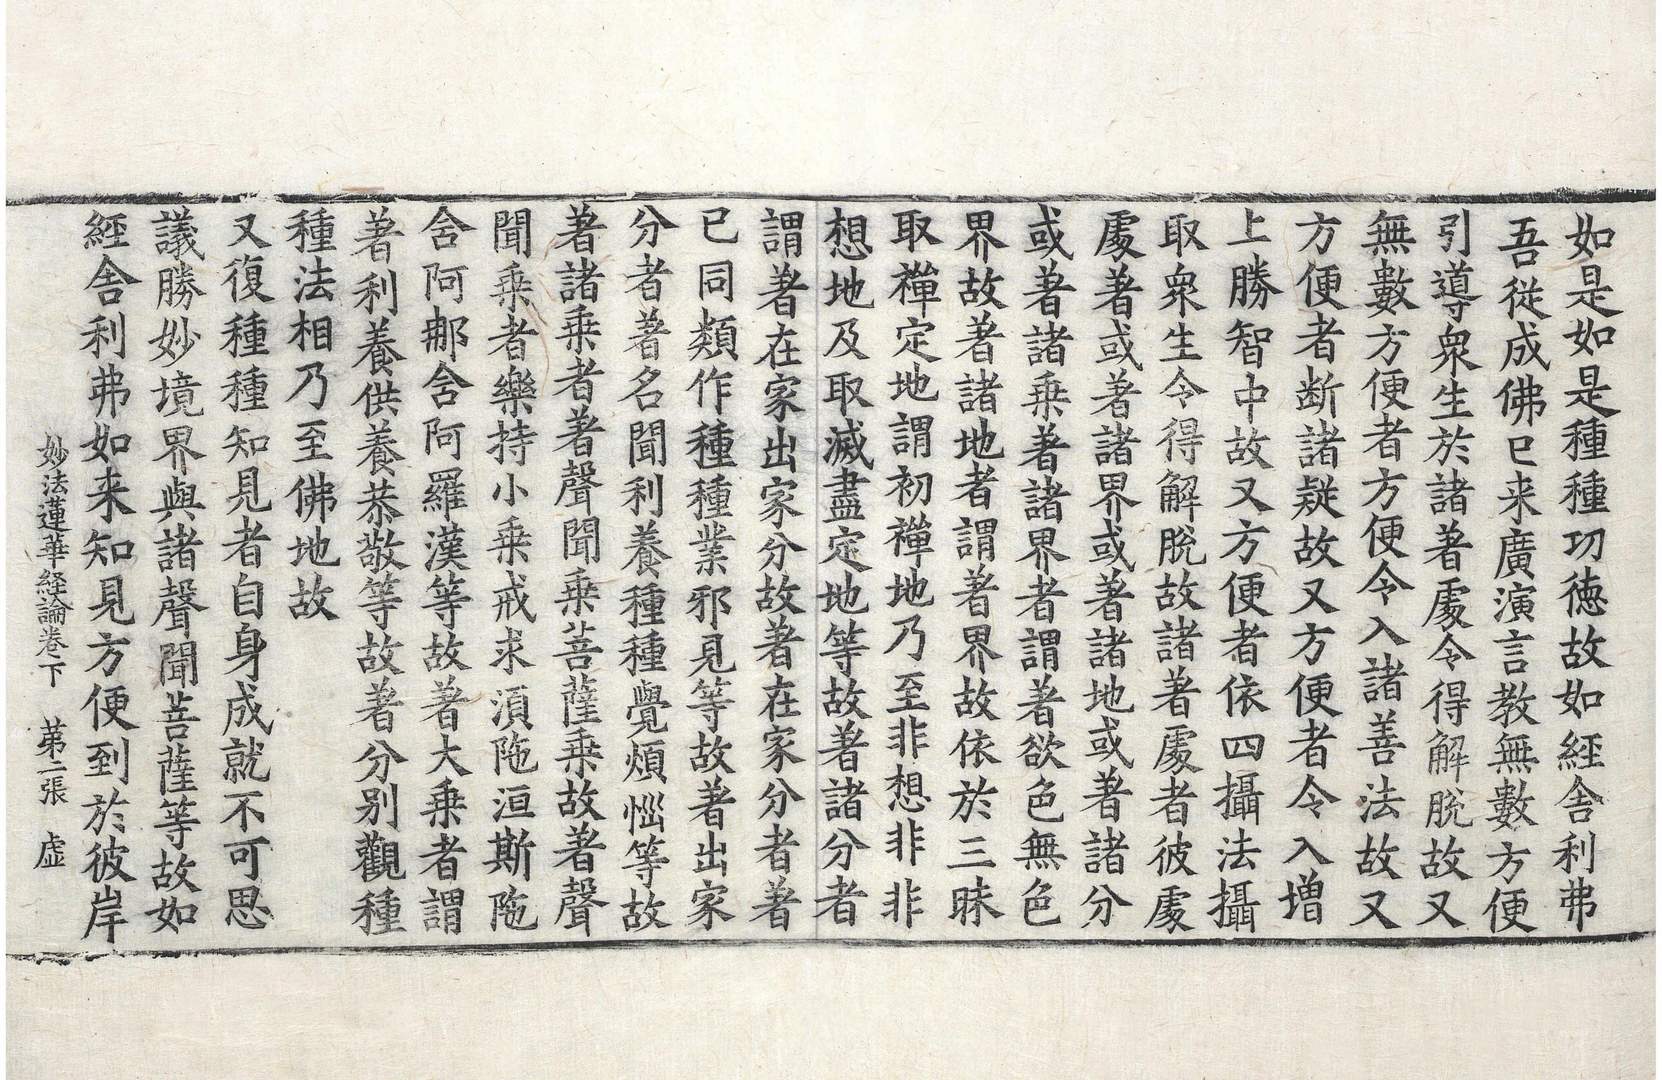 如是如是種種功徳故如經舍利弗
吾從成佛已来廣演言教無數方便
引導衆生於諸著處令得解脫故又
無數方便者方便令入諸善法故又
方便者断諸疑故又方便者令入增
上勝智中故又方便者依四攝法攝
取衆生令得解脫故諸著處者彼處
處著或著諸界或著諸地或著諸分
或著諸乗著諸界者謂著欲色無色
界故著諸地者謂著界故依於三昧
取禪定地謂初禪地乃至非想非非
想地及取滅盡定地等故著諸分者
謂著在家出家分故著在家分者著
已同類作種種業邪見等故著出家
分者著名聞利養種種覺煩惱等故
著諸乗者著聲聞乗菩薩乗故著聲
聞乗者樂持小乗戒求湏陁洹斯陁
含阿那含阿羅漢等故著大乗者謂
著利養供養恭敬等故著分别觀種
種法相乃至佛地故
又復種種知見者自身成就不可思
議勝妙境界與諸聲聞菩薩等故如
經舍利弗如来知見方便到於彼岸
妙法蓮華経論卷下 苐二張 虚